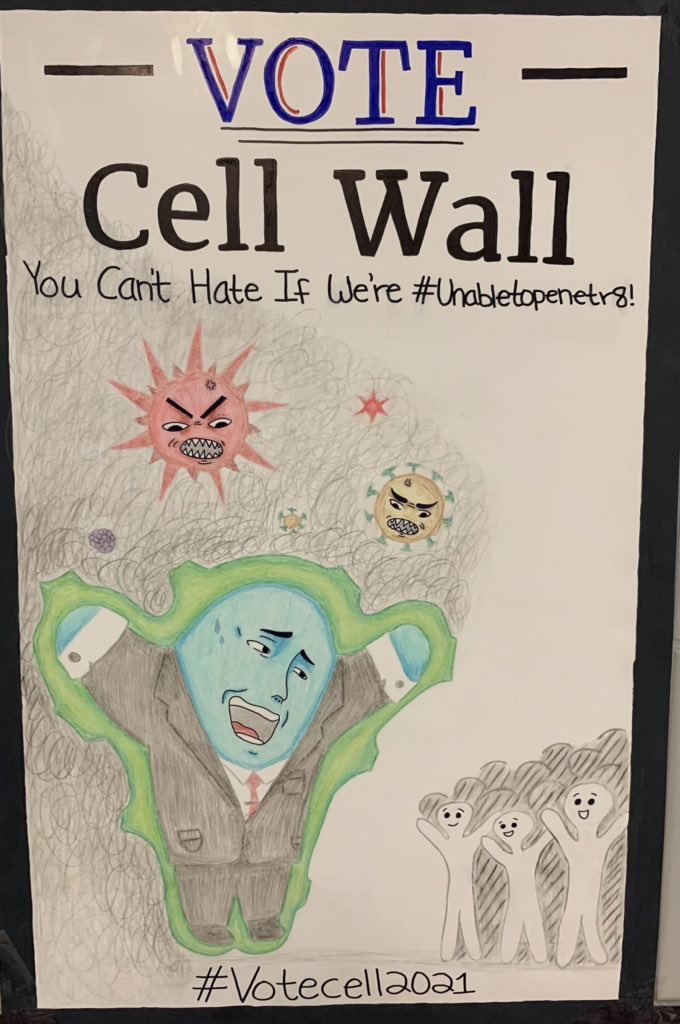 VOTE
Cell Wall
You Can't Hate If We're #Unabletopenetr8!
#Votecell2021